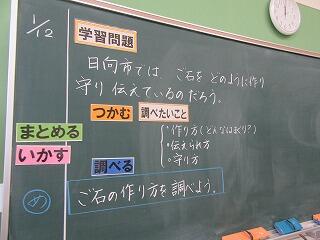 1/12
学習問題
日向市では ご石を どのように作り
守り 伝えているのだろう。
つかむ 調べたいこと
・作り方(どんなはまぐり?)
・伝えられ方
・守り方
まとめる
いかす
調べる
め
ご石の作り方を調べよう。